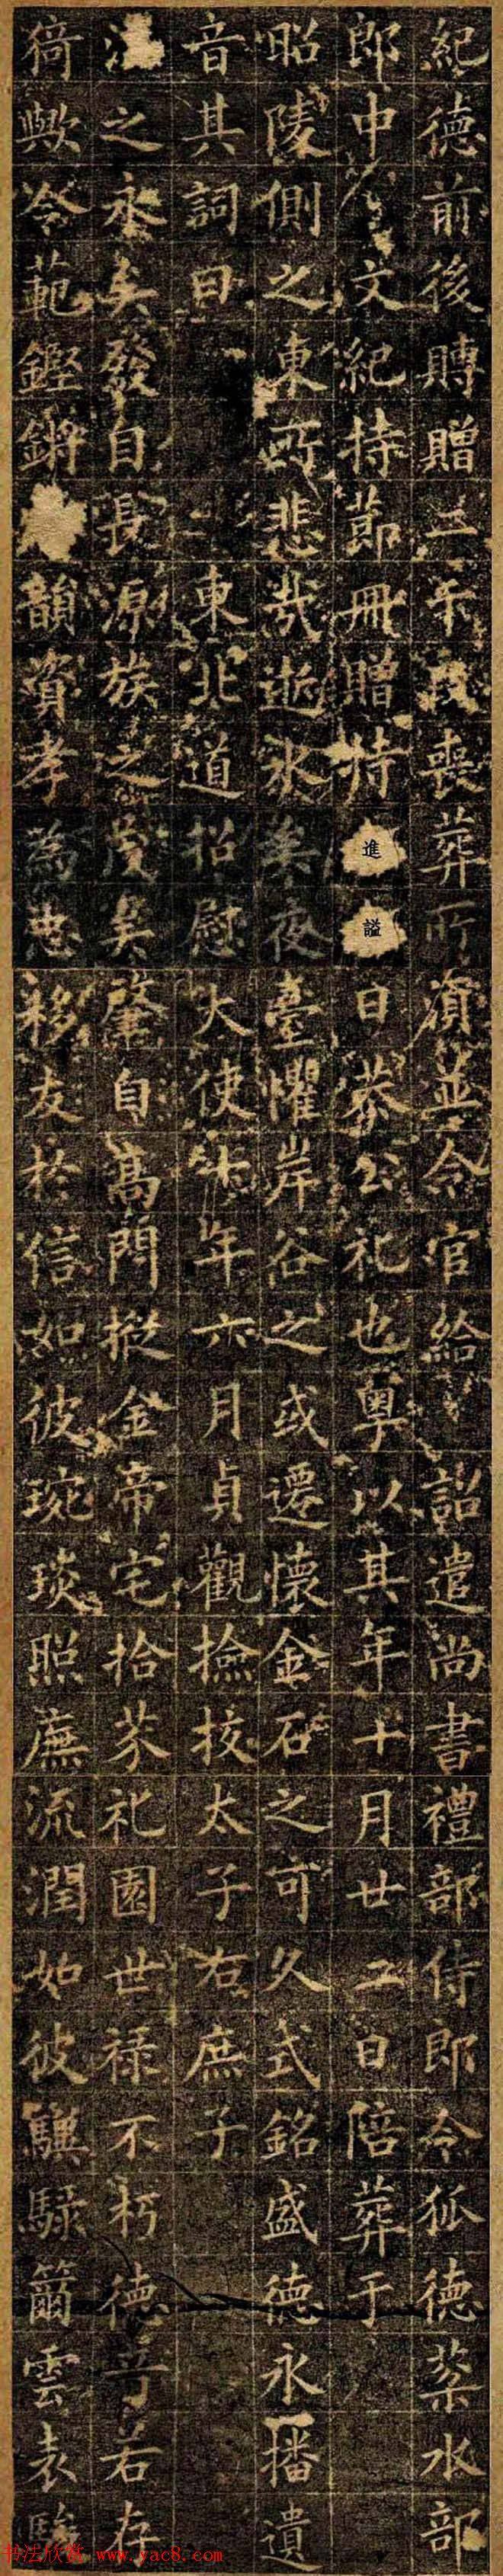 紀德前後賻贈二千段喪葬所須並令官給詔遣尚書禮部侍郎令狐德棻水部
郎中文紀持節冊贈特進謚曰恭公礼也粤以其年十月廿二日陪葬于
昭陵側之東所悲哉逝水矣夜臺懼岸谷之或遷懷金石之可久式銘盛德永播遺
音其詞曰東北道招慰大使十年六月貞觀撿挍太子右庶子
之永矣發自長源族之茂矣肇自高門摐金帝宅拾芥礼園世禄不朽德音若存
猗歟冷範鏗鏘韻資孝為忠移友於信如彼琬琰照廡流潤如彼驥騄籋雲表駿
书法欣赏 www.yac8.com